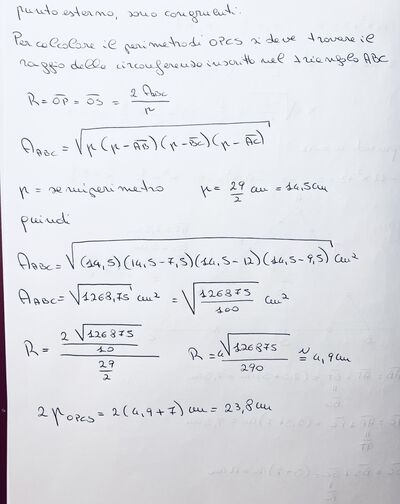 punto esterno, sono congruenti.
Per calcolare il perimetro di OPCS si deve trovare il
raggio della circonferenza inscritta nel triangolo ABC
R = OP = OS = 2 A_ABC / p
A_ABC = √p(p-AB)(p-BC)(p-AC)
p = semiperimetro p = 29/2 cm = 14,5 cm
quindi
A_ABC = √(14,5)(14,5-7,5)(14,5-12)(14,5-9,5) cm²
A_ABC = √1268,75 cm² = √126875/100 cm²
R = 2 √126875/10 / 29/2 R = 4√126875/290 ≅ 4,9 cm
2p_OPCS = 2(4,9+7) cm = 23,8 cm